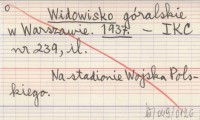 Widowisko góralskie
w Warszawie. 1937. – IKC
nr 239, il.
Na stadionie Wojska Pols-
kiego.